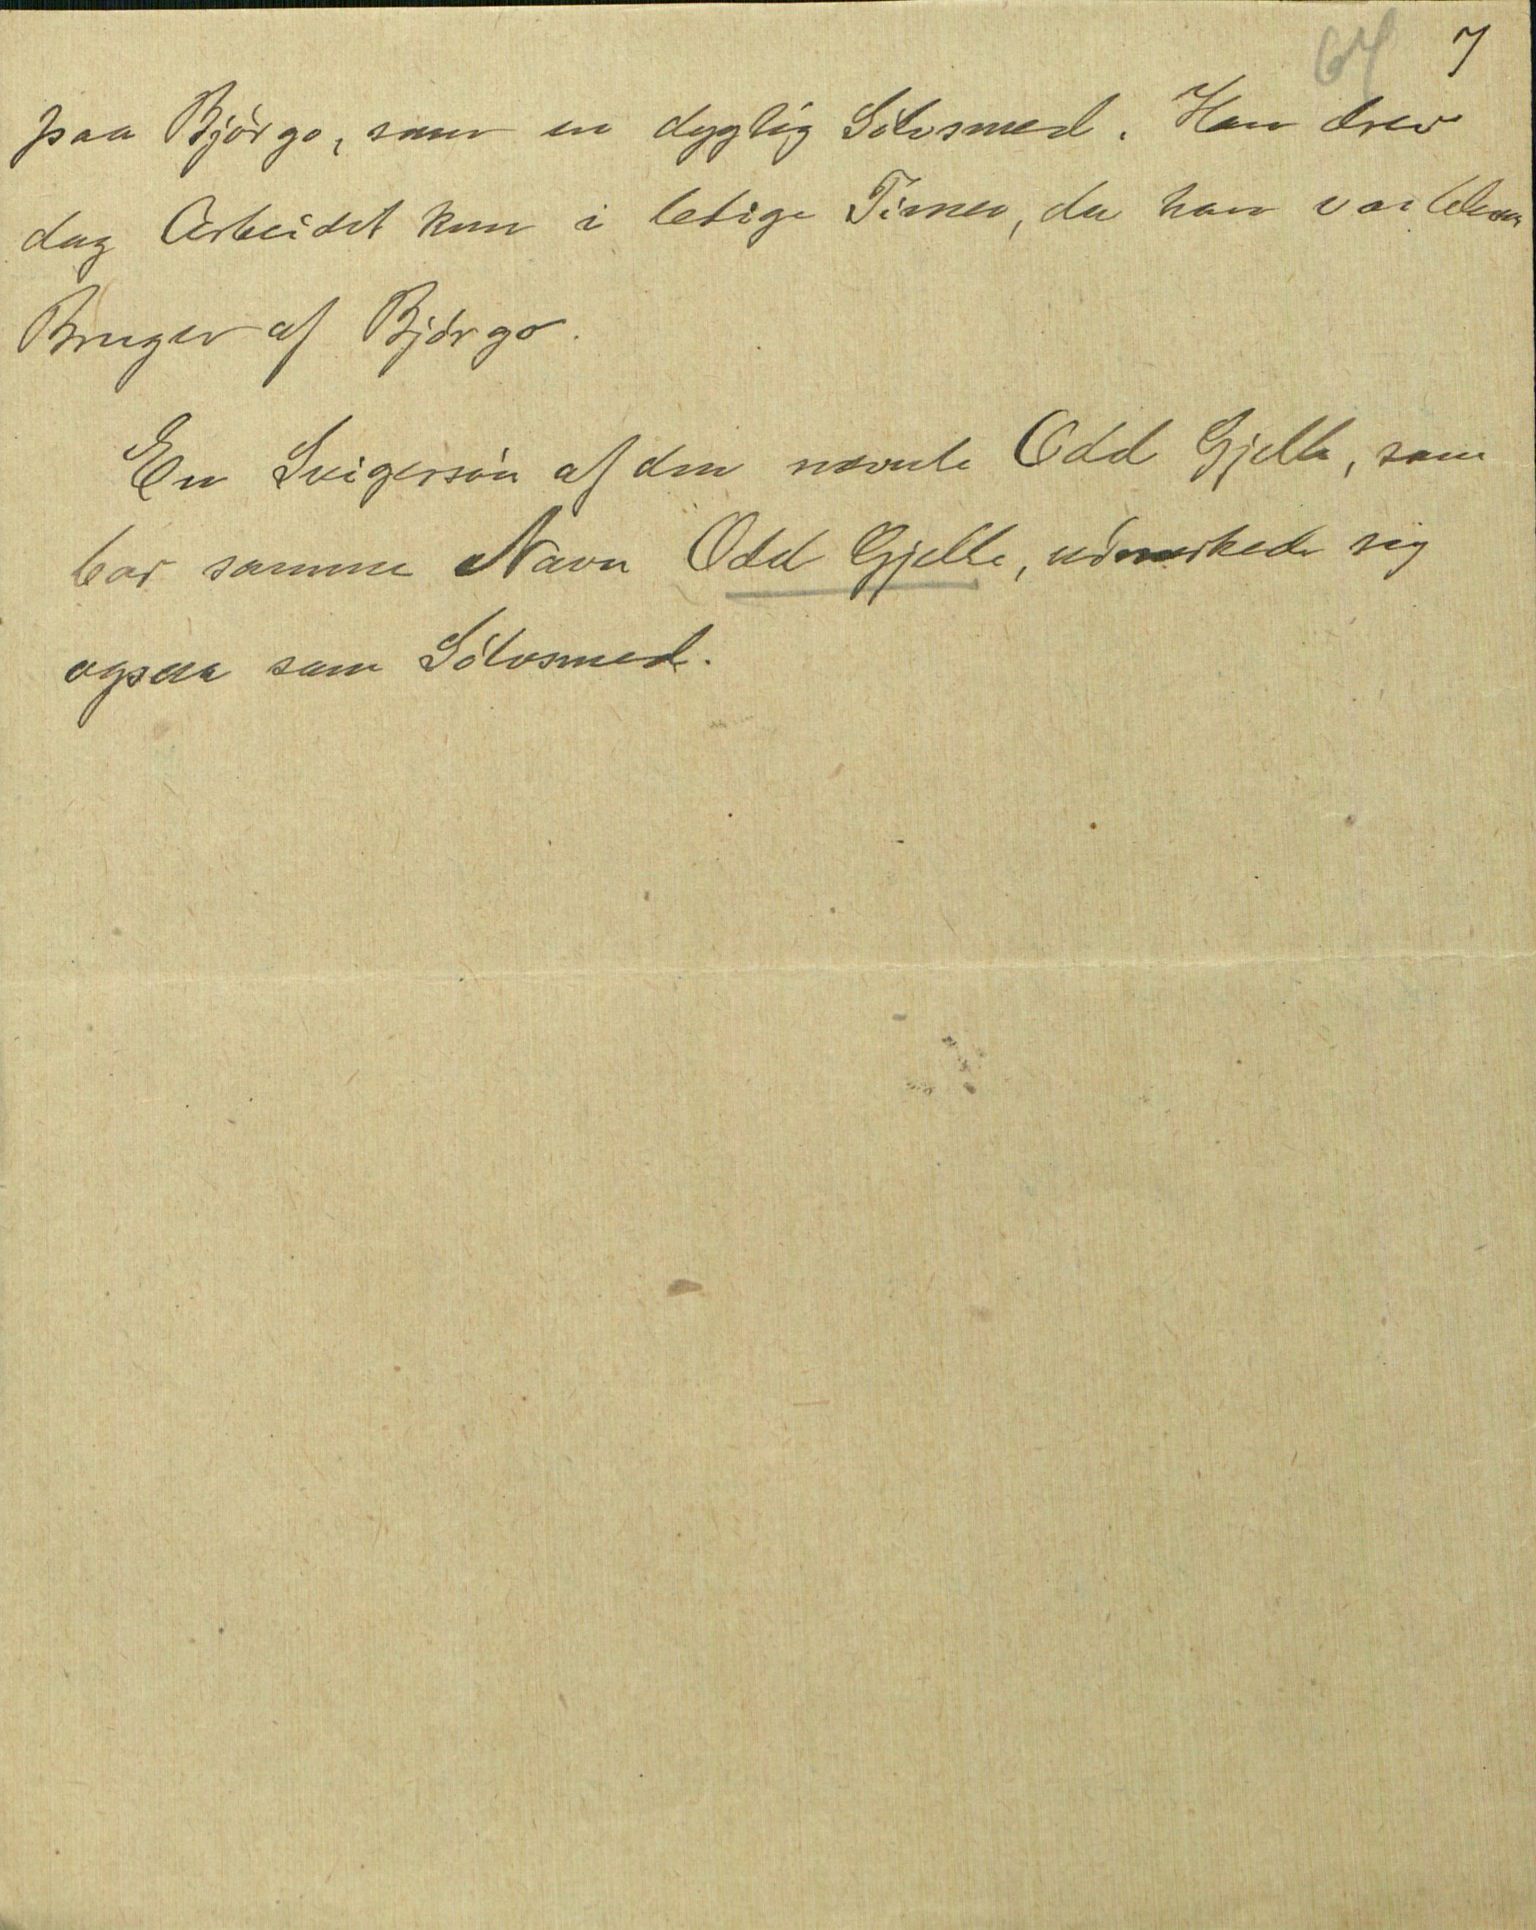 64 7
paa Bjórgo, som en dygtig Sólvsmed. Han drev
dog Arbeidet kun i ledige Timer, da han var
Bruger af Bjórgo.
En Svigersón af den nævnte Odd Gjelle, som
bar samme Navn Odd Gjelle, udmerkede sig
ogsaa som Sólvsmed.